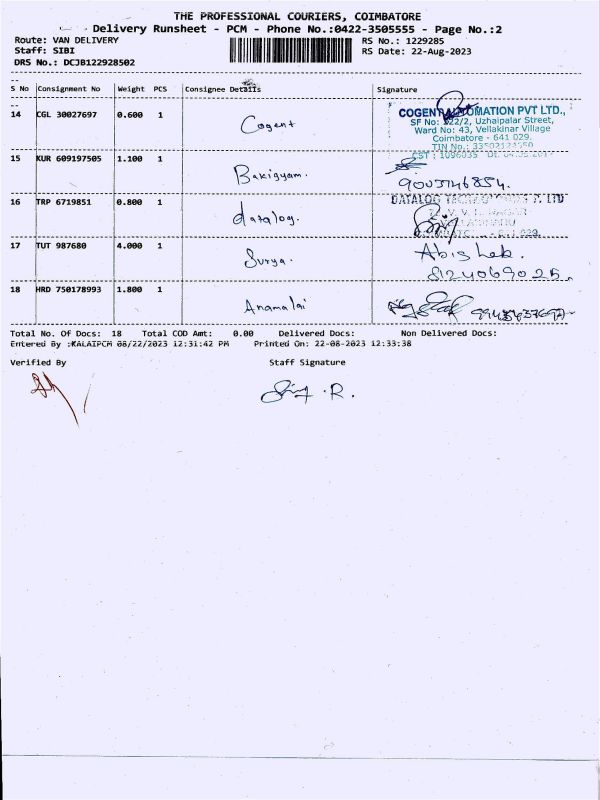 THE PROFESSIONAL COURIERS, COIMBATORE
Delivery Runsheet - PCM - Phone No.:0422-3505555 - Page No.:2
Route: VAN DELIVERY
RS No.: 1229285
Staff: SIBI
RS Date: 22-Aug-2023
DRS No.: DCJB122928502
S No Consignment No Weight PCS Consignee Details Signature
14 CGL 30027697 0.600 1 Cogent
COGENT AUTOMATION PVT LTD.,
SF No: 522/2, Uzhaipalar Street,
Ward No: 43, Vellakinar Village
Coimbatore - 641 029.
TIN No.:
CST : 1096035
15 KUR 609197505 1.100 1 Bakigyam.
9003746854.
16 TRP 6719851 0.800 1 datalog.
DATALOG
17 TUT 987680 4.000 1 Surya. Abishek.
8124069025.
18 HRD 750178993 1.800 1 Anamalai
Total No. Of Docs: 18 Total COD Amt: 0.00 Delivered Docs: Non Delivered Docs:
Entered By :KALAIPCM 08/22/2023 12:31:42 PM Printed On: 22-08-2023 12:33:38
Verified By Staff Signature